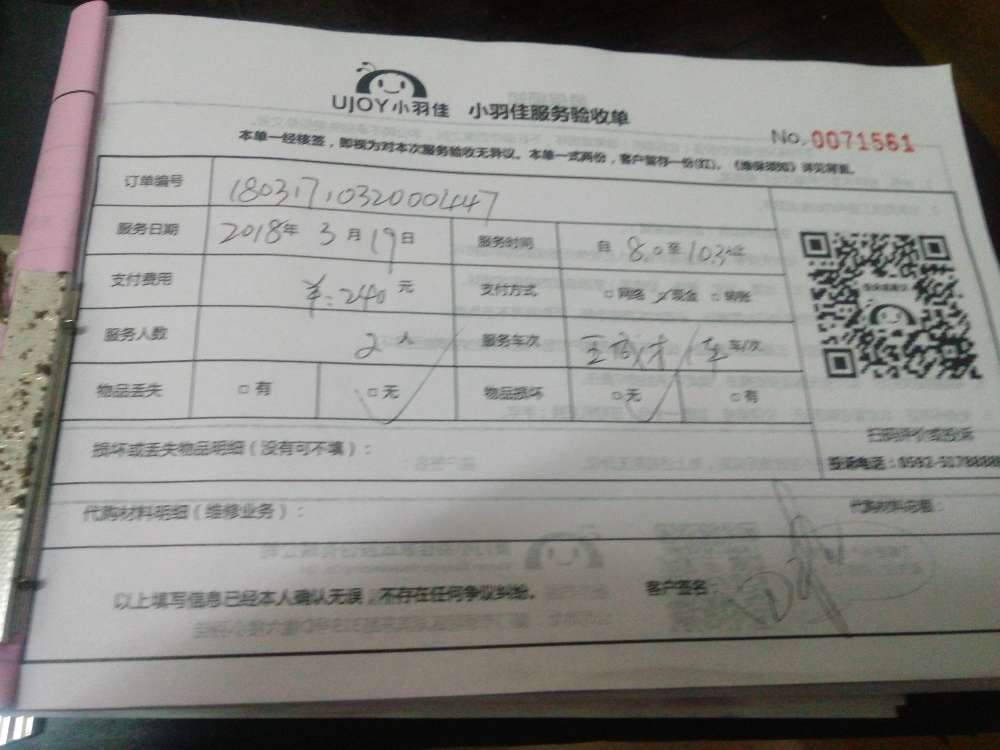 UJOY小羽佳 小羽佳服务验收单
No. 0071561
本单一经核签，即视为对本次服务验收无异议。本单一式两份，客户留存一份(红)。《维保须知》详见背面。
订单编号 18031710320001447
服务日期 2018年 3月19日 服务时间 自 8.0至10.3
支付费用 ￥:240元 支付方式 □网络 ✓现金 □转账
服务人数 2人 服务车次 车/次
物品丢失 □有 □无 物品损坏 □无 □有
扫码评价或投诉
损坏或丢失物品明细（没有可不填）：
投诉电话：0592-5178888
代购材料明细（维修业务）： 代购材料总额：
以上填写信息已经本人确认无误，不存在任何争议纠纷。 客户签名：